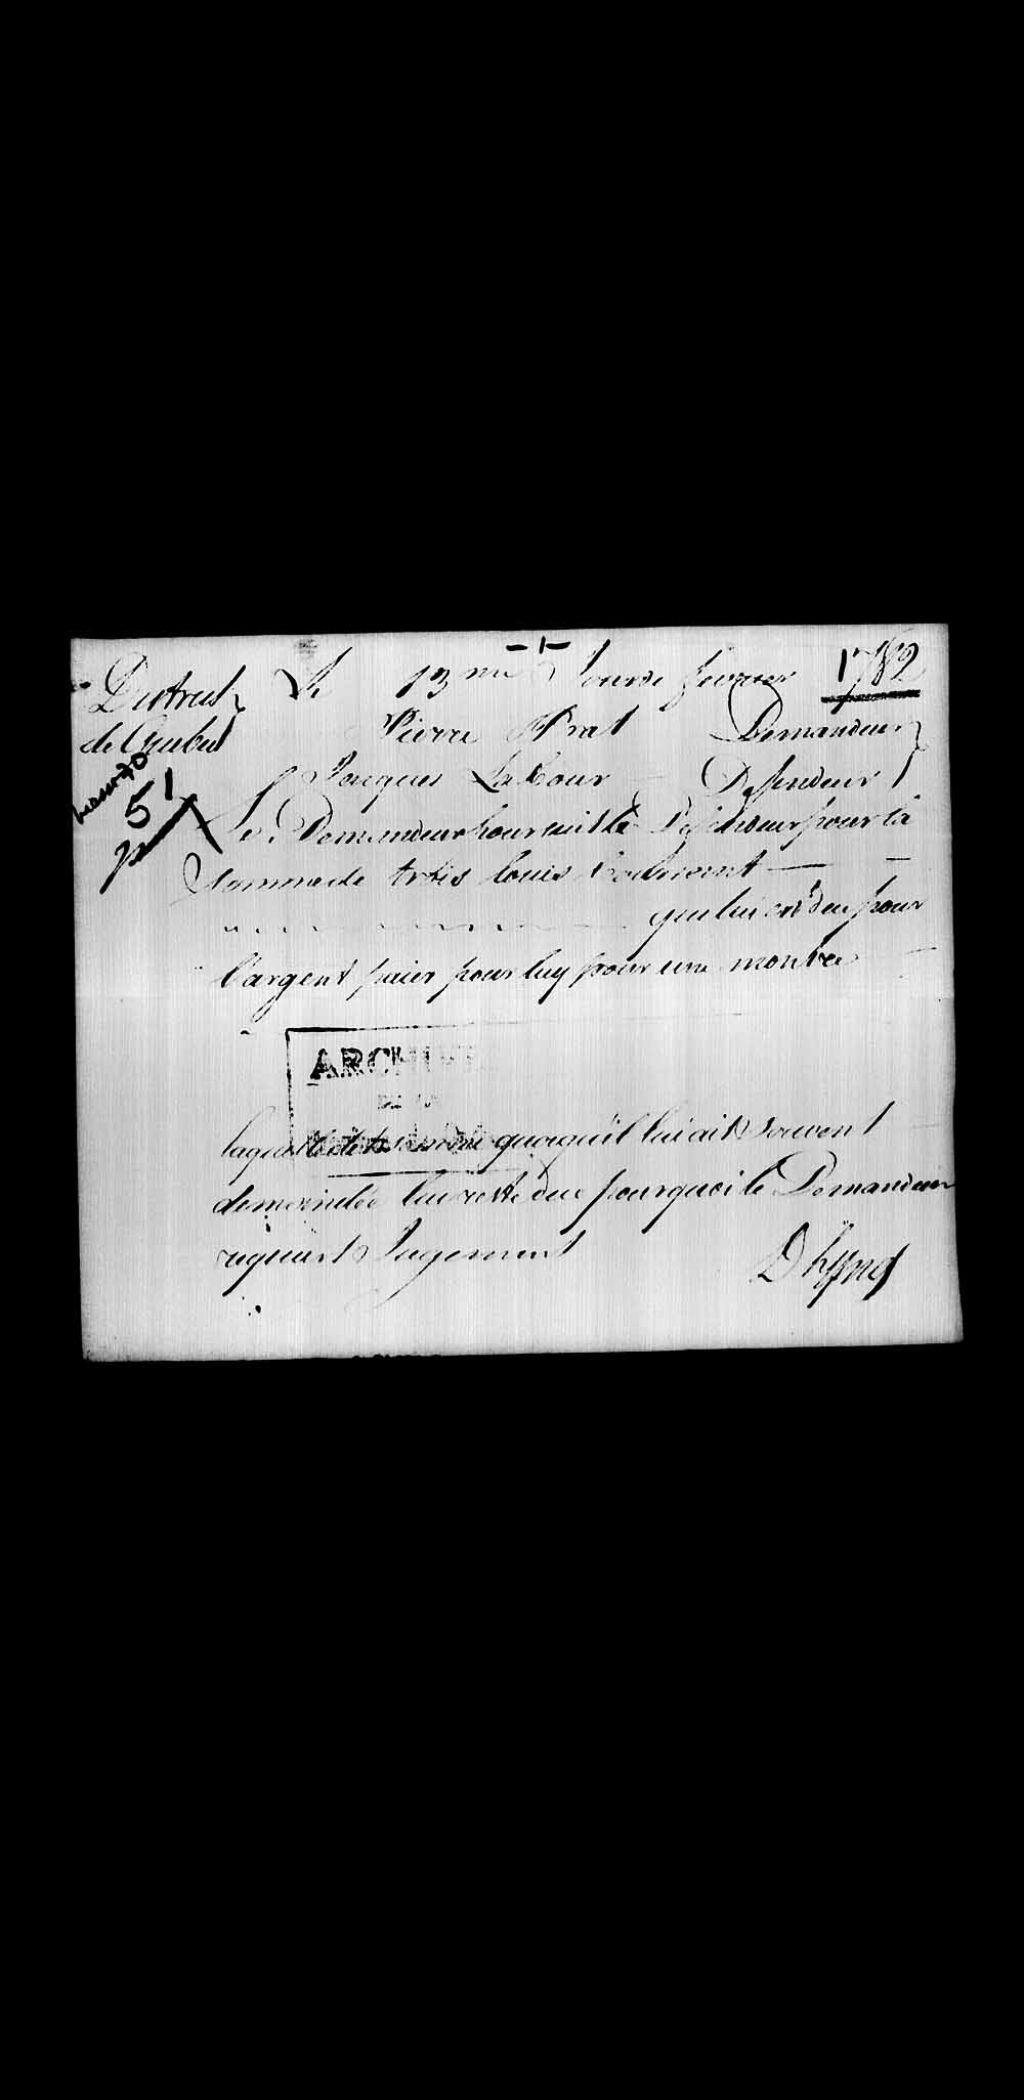 - 1 -
District } Le 13me Jour de fevrier 1782
de Quebec } Pierre Prat Demandeur }
Jacques LaCour Defendeur }
51
Le Demandeur poursuit le Defendeur pour la
Somme de trois louis
que lui est due pour
l'argent paier pour luy pour une montre
ARCHIVES
DE LA
laquelle dite somme quoiqu'il lui ait souvent
demandée lui reste due pourquoi le Demandeur
requiert Jugement